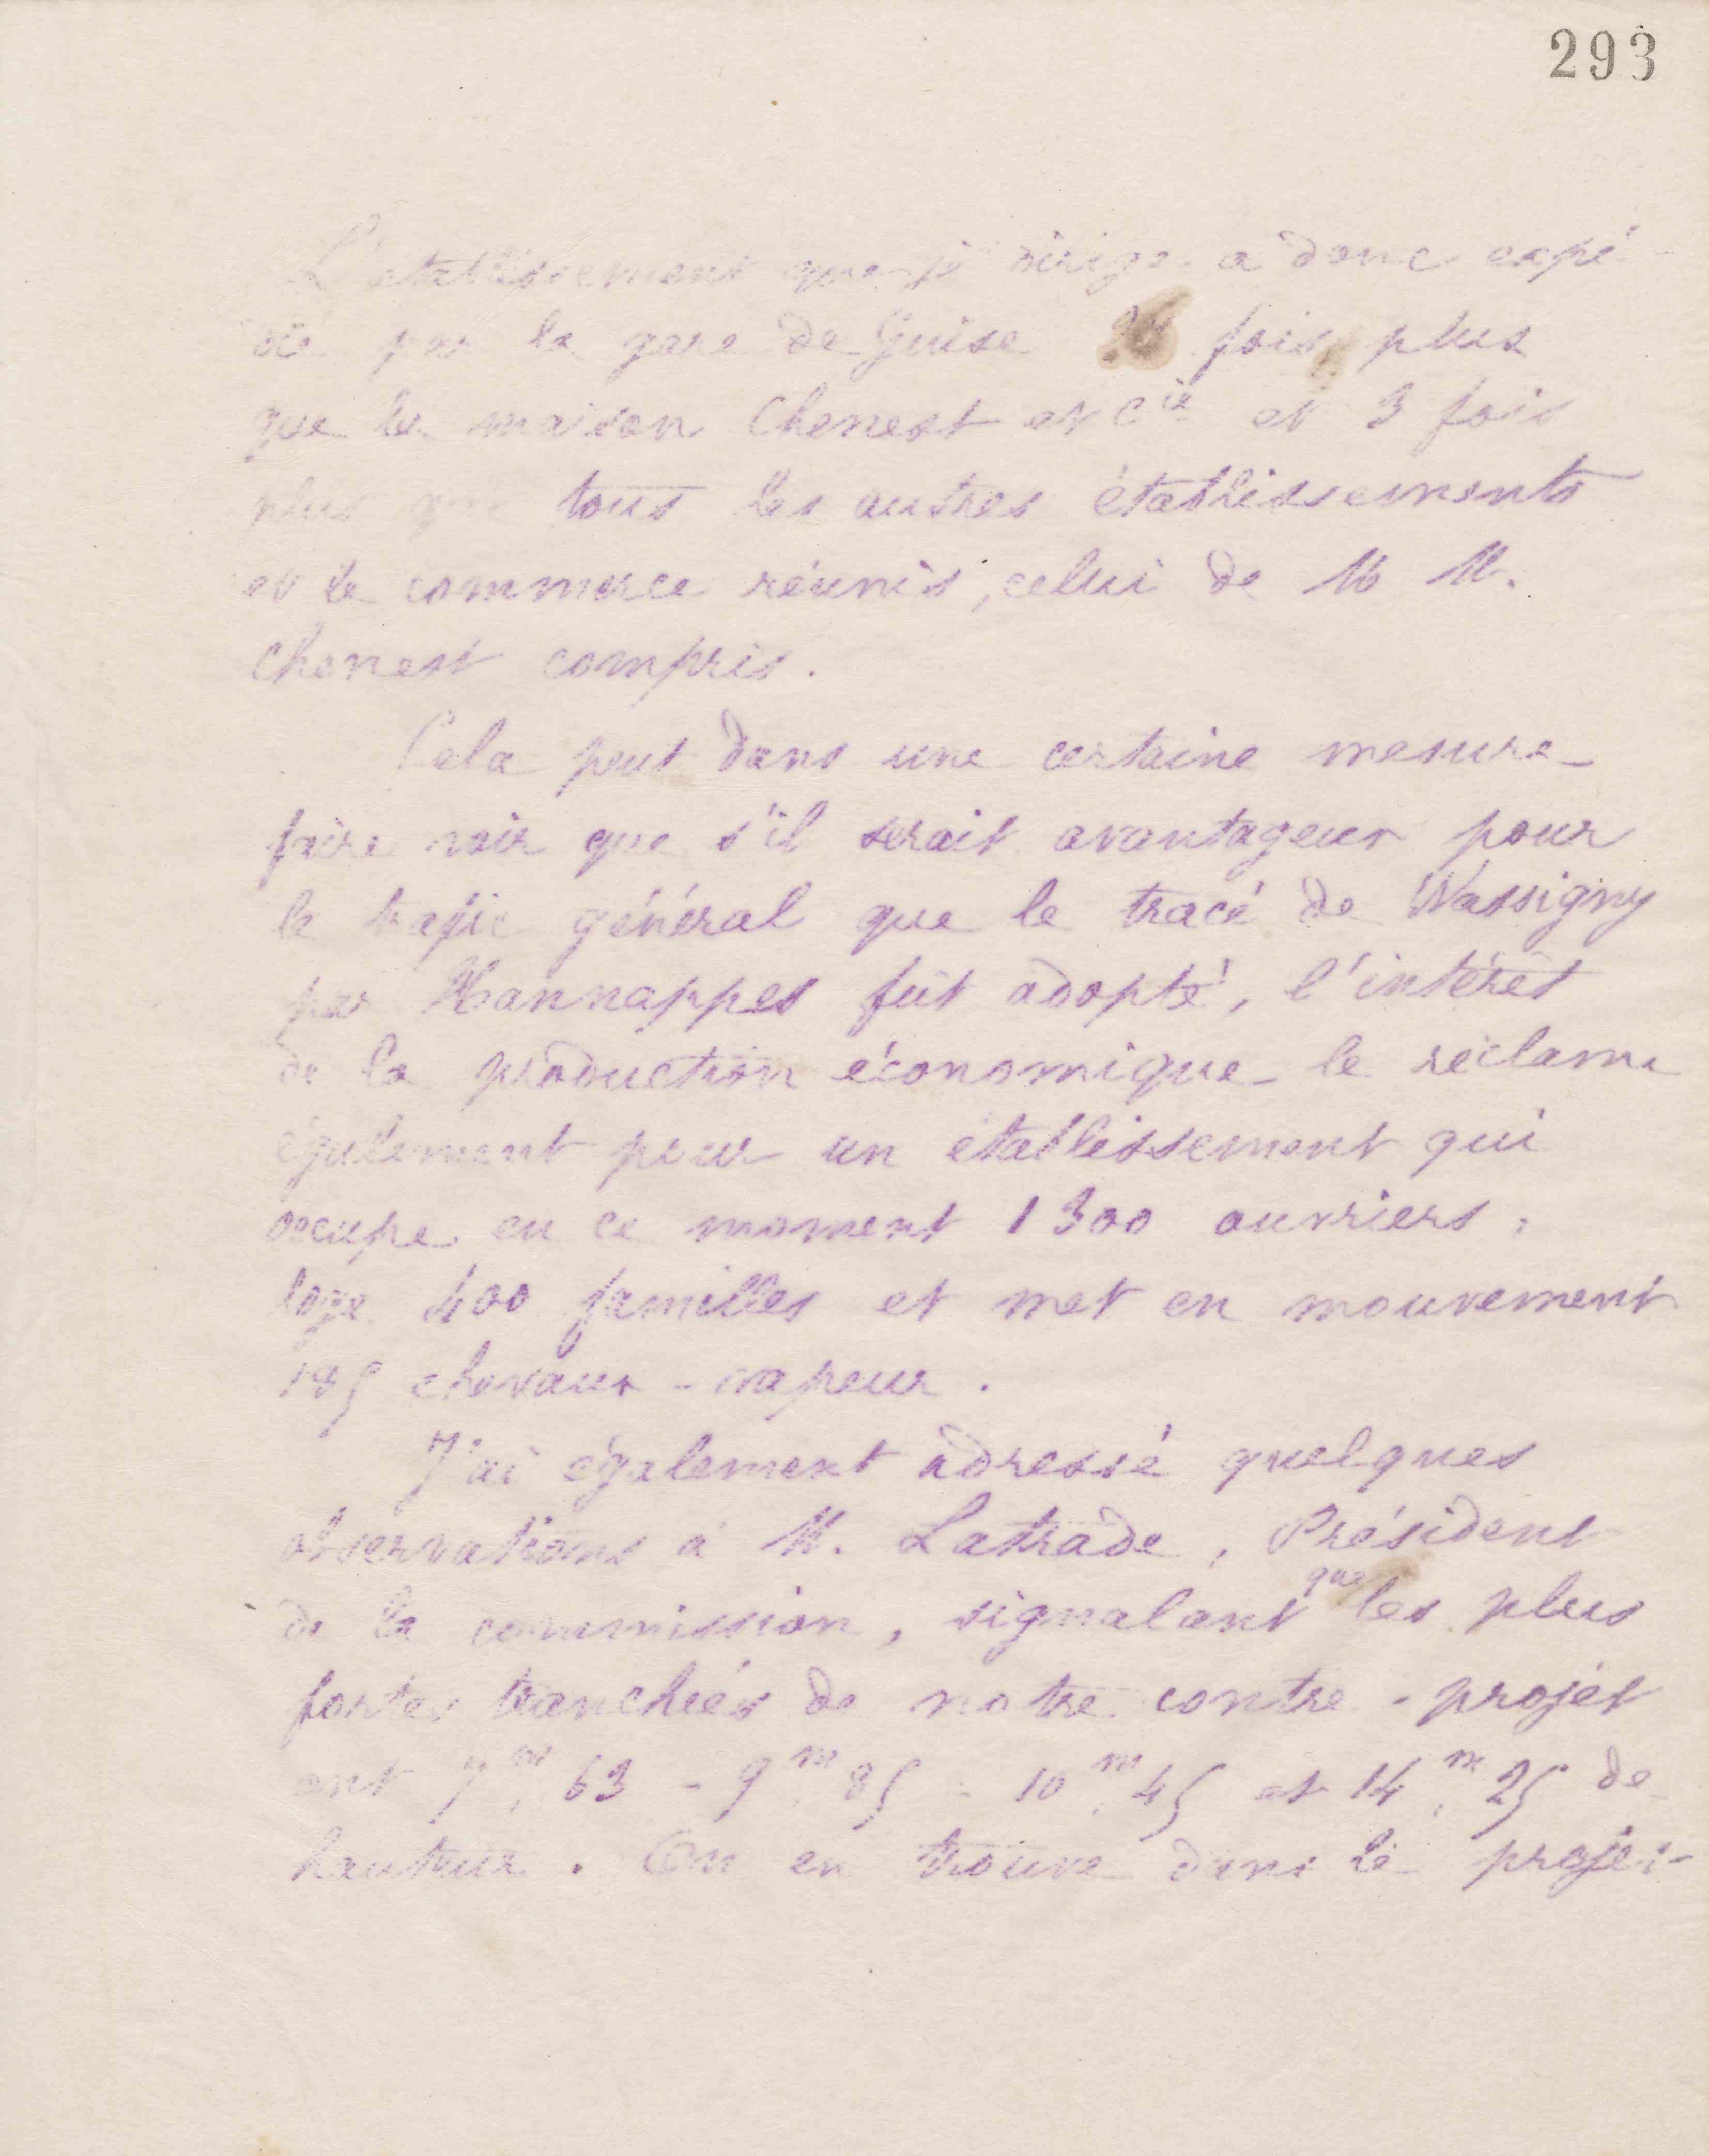 293
L'établissement que je dirige a donc expé-
dié par la gare de Guise fois plus
que la maison Chenest et Cie et 3 fois
plus que tous les autres établissements
et le commerce réunis, celui de M M.
Chenest compris.
Cela peut dans une certaine mesure
faire voir que s'il serait avantageux pour
le trafic général que le tracé de Wassigny
par Hannappes fût adopté, l'intérêt
de la production économique le réclame
également pour un établissement qui
occupe en ce moment 1300 ouvriers,
loge 400 familles et met en mouvement
chevaux-vapeur.
J'ai également adressé quelques
observations à M. Latrade, Président
de la commission, signalant que les plus
fortes tranchées de notre contre-projet
ont 7m,63 - 9m,85 - 10m,45 et 14m,25 de
hauteur. On en trouve dans le projet